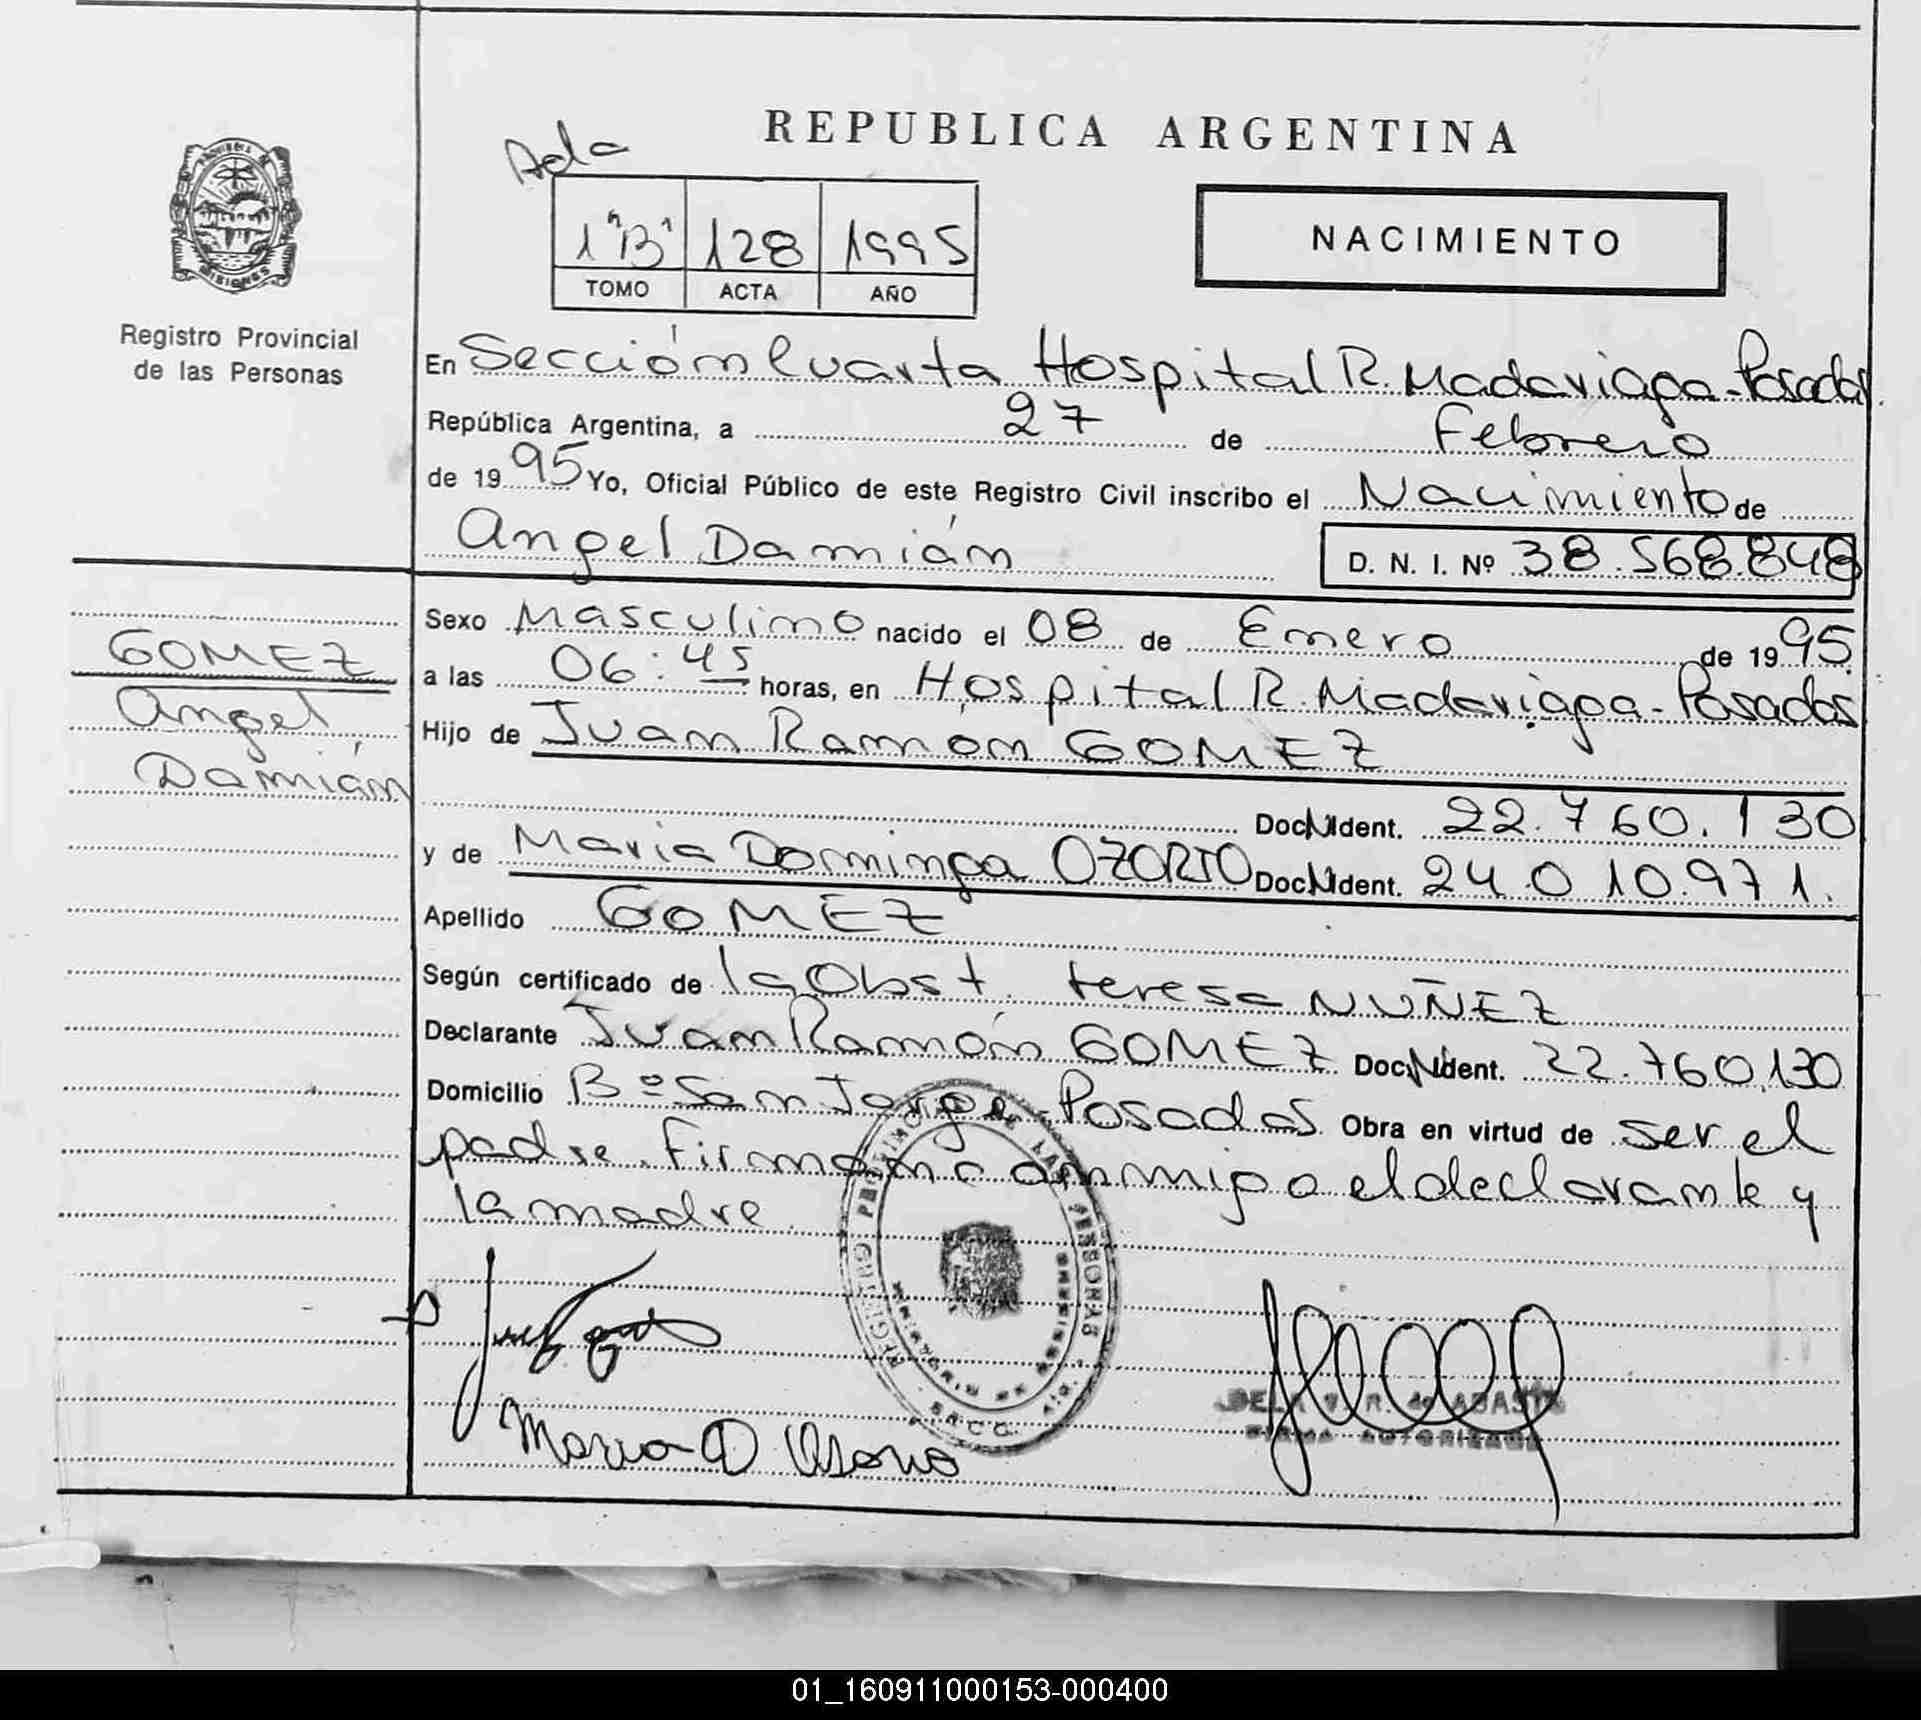 REPUBLICA ARGENTINA
Ada
1 "B" 128 1995
TOMO ACTA AÑO
NACIMIENTO
MISIONES
Registro Provincial
de las Personas
En Sección Cuarta Hospital R. Madariaga - Posadas.
República Argentina, a 27 de Febrero
de 1995 Yo, Oficial Público de este Registro Civil inscribo el Nacimiento de
Angel Damián D. N. I. Nº 38.568.848
GOMEZ
Angel
Damián
Sexo Masculino nacido el 08 de Enero de 1995
a las 06:45 horas, en Hospital R. Madariaga - Posadas
Hijo de Juan Ramón GOMEZ
Doc. Ident. 22.760.130
y de Maria Dominga OZORIO Doc. Ident. 24.010.971.
Apellido GOMEZ
Según certificado de la Obst. teresa NUÑEZ
Declarante Juan Ramón GOMEZ Doc. Ident. 22.760.130
Domicilio Bº San Jorge - Posadas Obra en virtud de ser el
padre. Firman conmigo el declarante y
la madre.
REGISTRO PROVINCIAL DE LAS PERSONAS
Maria D Osorio
FIRMA AUTORIZADA
01_160911000153-000400